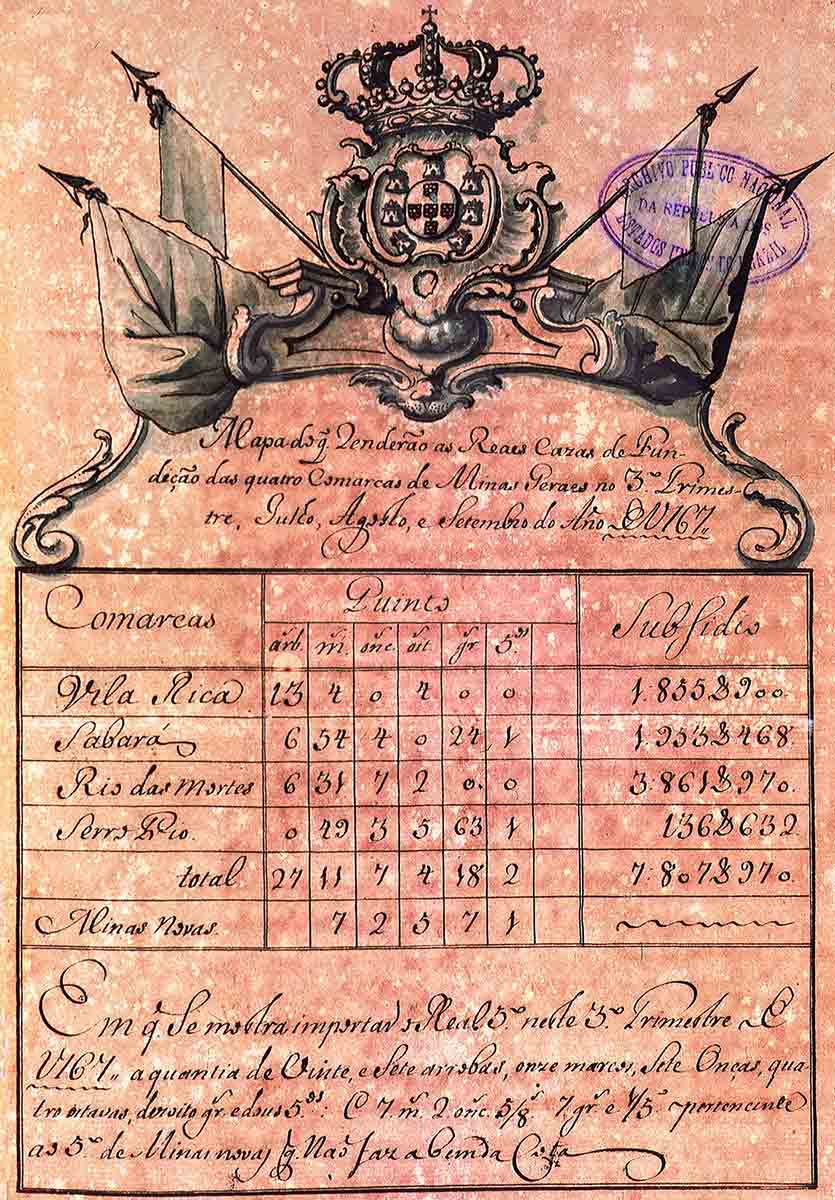 ARCHIVO PUBLICO NACIONAL
DA REPUBLICA DOS
ESTADOS UNIDOS DO BRAZIL
Mapa do q̃. Renderão as Reaes Cazas de Fun-
deção das quatro Comarcas de Minas Geraes no 3.º Trimes-
tre, Julho, Agosto, e Setembro do Año 1767,,
Comarcas Quinto Subsidio
arb. m. onc. oit. gr. 5.os
Vila Rica 13 4 0 4 0 0 1:855$900.
Sabará 6 54 4 0 24 1 1:953$468.
Rio das Mortes 6 31 7 2 0. 0 3:861$970.
Serro Frio. 0 49 3 5 63 1 136$632.
total 27 11 7 4 18 2 7:807$970.
Minas Novas. 7 2 5 7 1
Em q̃. Se mostra importar o Real 5.º neste 3.º Trimestre
1767,, a quantia de Vinte, e Sete arrobas, onze marcos, Sete Onças, qua-
tro oitavas, dezoito gr. e dous 5.os: E 7. m. 2 onc. 5/8.s 7. gr. e 1/5.º pertencente
ao 5.º de Minas novas q̃. Nao faz a bem da Cota